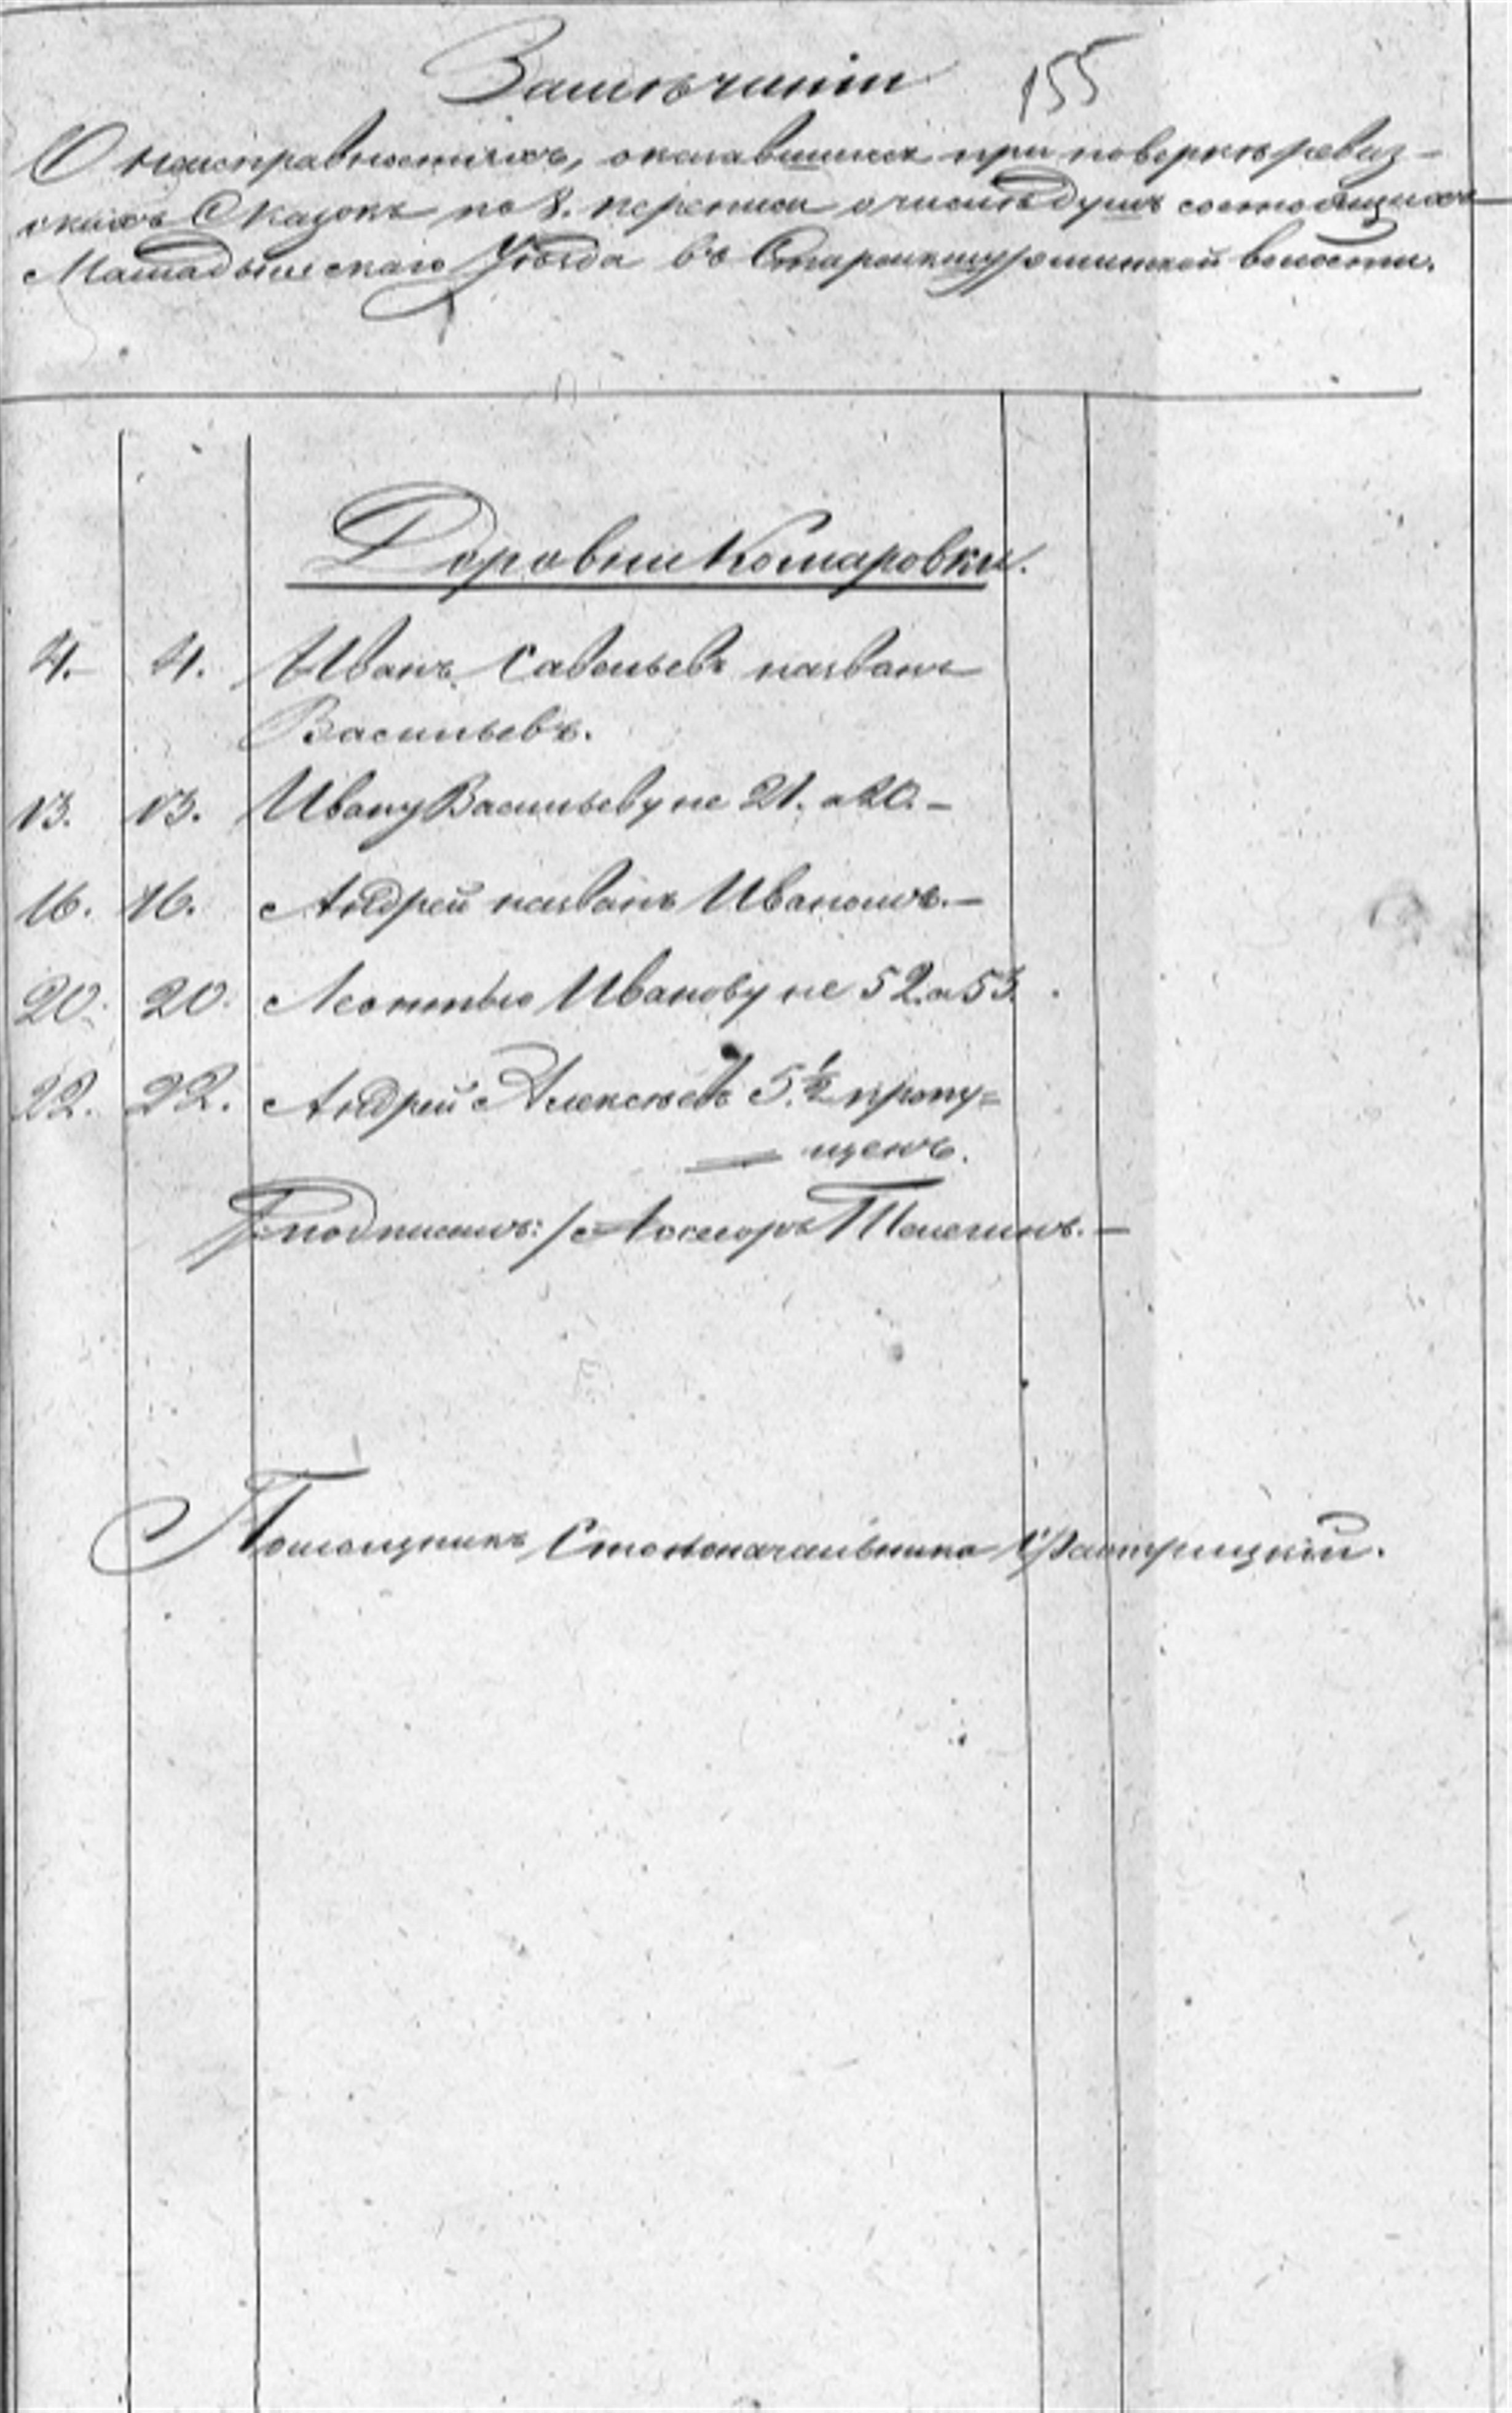 Замѣчаніи 155
О неисправностяхъ, оказавшихся при повѣркѣ ревиз-
скихъ Сказокъ по 8. переписи о числѣ душъ состоящихъ
Мамадышскаго Уѣзда въ волости.
Деревни Комаровки.
4. 4. Иванъ Савельевъ названъ
Васильевъ.
13. 13. Ивану Васильеву не 21. а 20. -
16. 16. Андрей названъ Иваномъ. -
20. 20. Леонтью Иванову не 52. а 53.
22. 22. Андрей Алексѣевъ 5.½ пропу=
щенъ.
подписалъ: / Асессоръ Телегинъ. -
Помощникъ Столоначальника